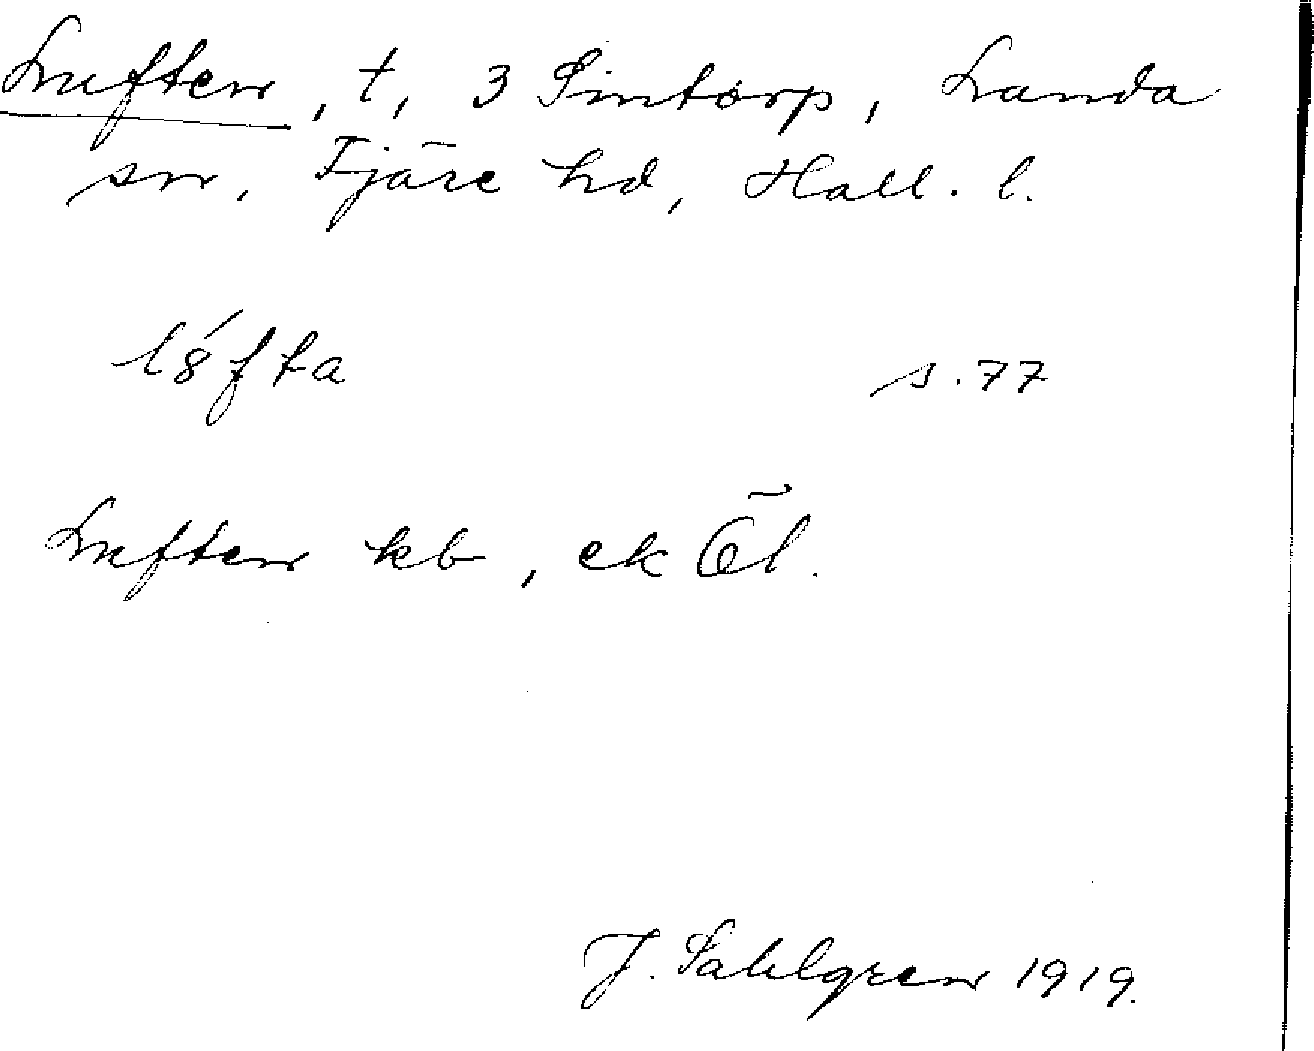 Luften, t, 3 Sintorp, Landa
sn, Fjäre hd, Hall. l.
s. 77
Luften kb, ek Öl.
J. Sahlgren 1919.